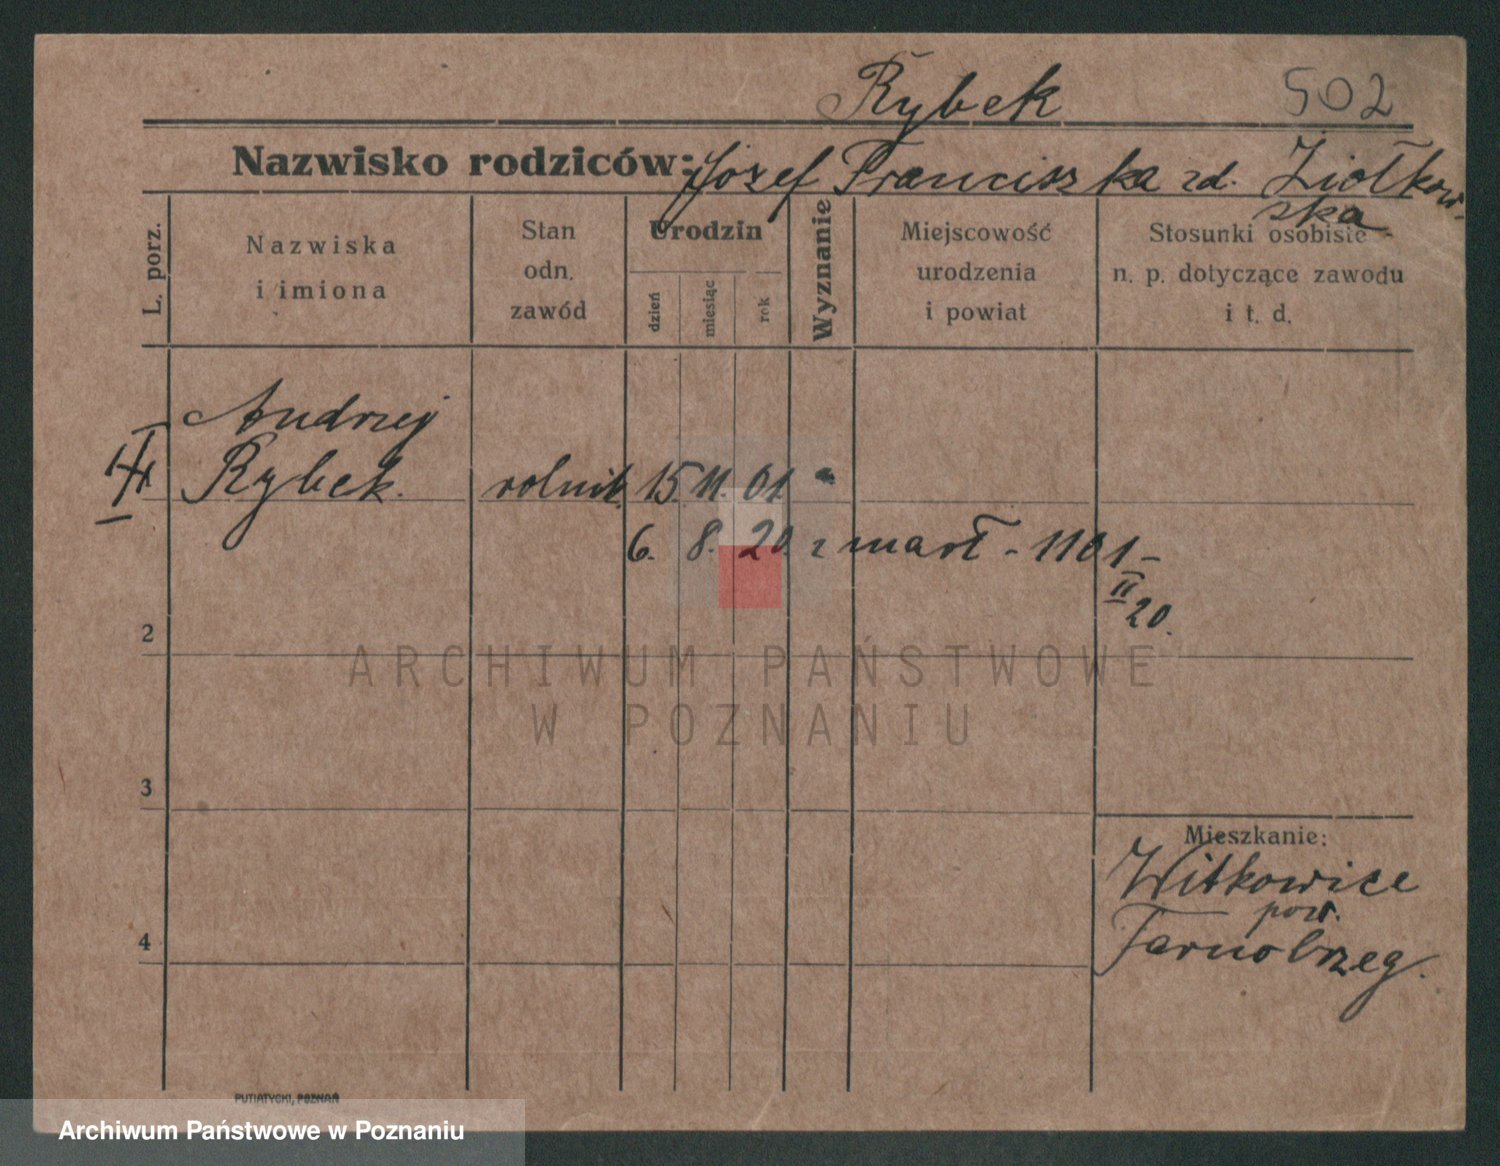 Rybek 502
Nazwisko rodziców: Józef Franciszka zd. Ziółkow-
ska
L. porz.
Nazwiska
i imiona
Stan
odn.
zawód
Urodzin
dzień
miesiąc
rok
Wyznanie
Miejscowość
urodzenia
i powiat
Stosunki osobiste
n. p. dotyczące zawodu
i t. d.
Andrzej
Rybek. rolnik 15. 11. 01. "
6. 8. 20. zmarł - 1101 -
II
20.
2
ARCHIWUM PAŃSTWOWE
W POZNANIU
3
Mieszkanie:
Witkowice
pow.
Tarnobrzeg.
4
PUTIATYCKI, POZNAŃ
Archiwum Państwowe w Poznaniu